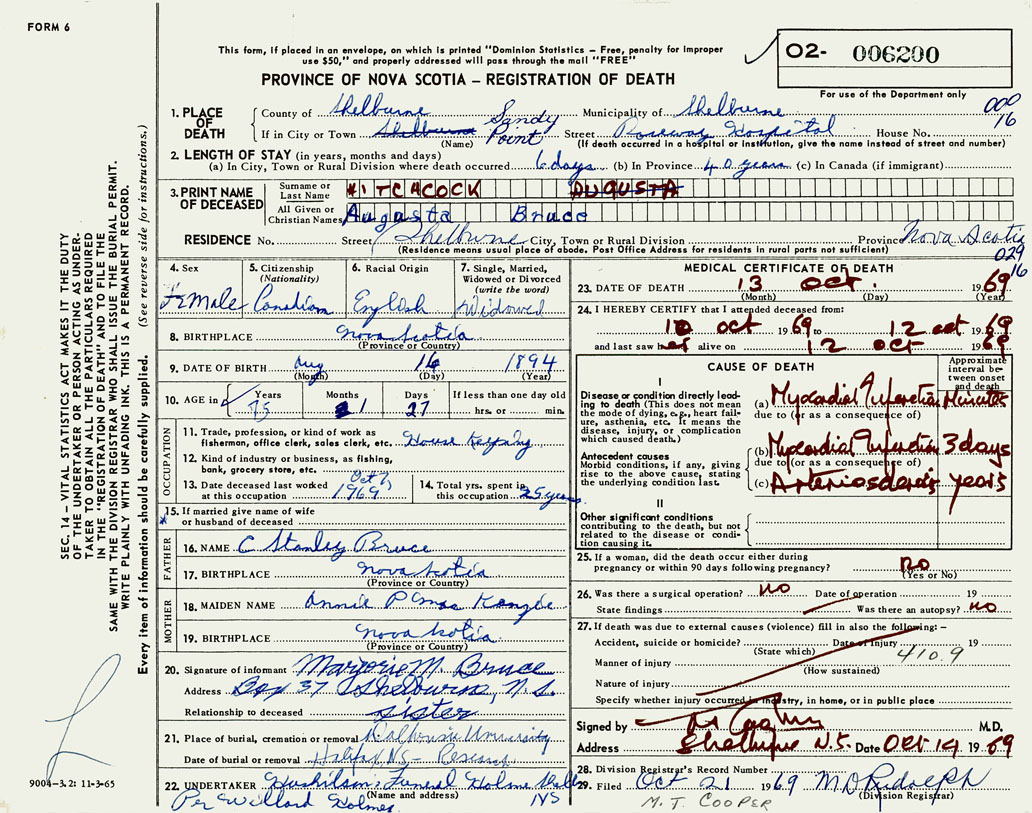 FORM 6
This form, if placed in an envelope, on which is printed "Dominion Statistics – Free, penalty for improper
use $50," and properly addressed will pass through the mail "FREE"
PROVINCE OF NOVA SCOTIA – REGISTRATION OF DEATH
O2- 006200
For use of the Department only
000
16
1. PLACE OF DEATH
County of Shelburne Municipality of Shelburne
If in City or Town Shelburne Sandy Point Street Roseway Hospital House No.
(Name) (If death occurred in a hospital or institution, give the name instead of street and number)
2. LENGTH OF STAY (in years, months and days)
(a) In City, Town or Rural Division where death occurred 6 days (b) In Province 40 years (c) In Canada (if immigrant)
3. PRINT NAME OF DECEASED
Surname or Last Name HITCHCOCK AUGUSTA
All Given or Christian Names Augusta Bruce
RESIDENCE No. Street Shelburne City, Town or Rural Division Province Nova Scotia
(Residence means usual place of abode. Post Office Address for residents in rural parts not sufficient)
029
16
4. Sex Female
5. Citizenship (Nationality) Canadian
6. Racial Origin English
7. Single, Married, Widowed or Divorced (write the word) Widowed
8. BIRTHPLACE Nova Scotia
(Province or Country)
9. DATE OF BIRTH Aug 16 1894
(Month) (Day) (Year)
10. AGE in Years 75 Months 1 Days 27 If less than one day old hrs. or min.
OCCUPATION
11. Trade, profession, or kind of work as fisherman, office clerk, sales clerk, etc. House Keeping
12. Kind of industry or business, as fishing, bank, grocery store, etc.
13. Date deceased last worked at this occupation Oct 7, 1969
14. Total yrs. spent in this occupation 25 years
15. If married give name of wife or husband of deceased
FATHER
16. NAME C Stanley Bruce
17. BIRTHPLACE Nova Scotia
(Province or Country)
MOTHER
18. MAIDEN NAME Annie P
19. BIRTHPLACE Nova Scotia
(Province or Country)
20. Signature of informant Marjorie M. Bruce
Address Box 37 Shelburne, N.S.
Relationship to deceased sister
21. Place of burial, cremation or removal Dalhousie University
Date of burial or removal Halifax, N.S. - Research
22. UNDERTAKER Funeral Home
(Name and address) NS
Per Willard Holmes
MEDICAL CERTIFICATE OF DEATH
23. DATE OF DEATH 13 Oct. 1969
(Month) (Day) (Year)
24. I HEREBY CERTIFY that I attended deceased from:
10 oct 1969 to 12 oct. 1969
and last saw her alive on 12 oct 1969
CAUSE OF DEATH
Approximate interval between onset and death
I
Disease or condition directly leading to death (This does not mean the mode of dying, e.g., heart failure, asthenia, etc. It means the disease, injury, or complication which caused death.)
(a) Myocardial Infarction Minutes
due to (or as a consequence of)
Antecedent causes
Morbid conditions, if any, giving rise to the above cause, stating the underlying condition last.
(b) Myocardial Infarction 3 days
due to (or as a consequence of)
(c) Arteriosclerosis years
II
Other significant conditions
contributing to the death, but not related to the disease or condition causing it.
25. If a woman, did the death occur either during pregnancy or within 90 days following pregnancy? no
(Yes or No)
26. Was there a surgical operation? no Date of operation 19
State findings Was there an autopsy? no
27. If death was due to external causes (violence) fill in also the following: –
Accident, suicide or homicide? Date of injury 19
(State which) 410.9
Manner of injury
(How sustained)
Nature of injury
Specify whether injury occurred in industry, in home, or in public place
Signed by M.D.
Address Shelburne N.S. Date Oct 14 1969
28. Division Registrar's Record Number
29. Filed Oct 21 1969 M D Rudolph
(Division Registrar)
M. T. COOPER
SEC. 14 – VITAL STATISTICS ACT MAKES IT THE DUTY
OF THE UNDERTAKER OR PERSON ACTING AS UNDERTAKER
TO OBTAIN ALL THE PARTICULARS REQUIRED
IN THE "REGISTRATION OF DEATH" AND TO FILE THE
SAME WITH THE DIVISION REGISTRAR WHO SHALL ISSUE THE BURIAL PERMIT.
WRITE PLAINLY WITH UNFADING INK. THIS IS A PERMANENT RECORD.
Every item of information should be carefully supplied. (See reverse side for instructions.)
9004–3.2: 11-3-65